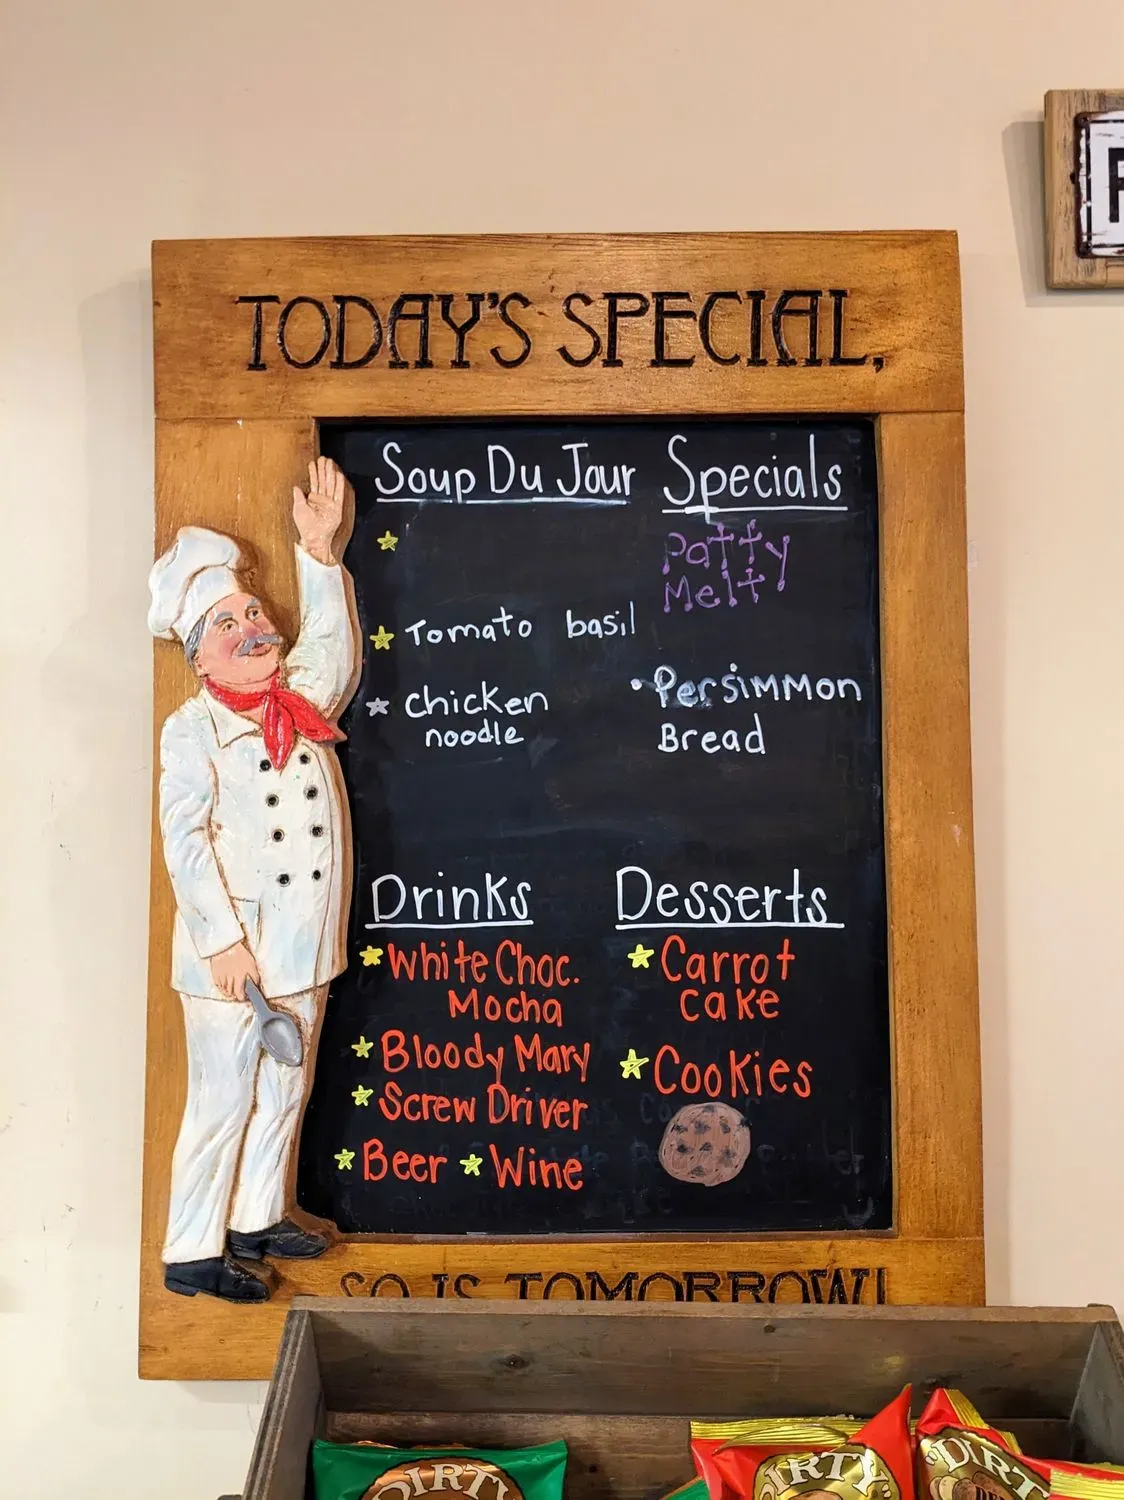 TODAY'S SPECIAL,
Soup Du Jour
Tomato basil
Chicken
noodle
Specials
Patty
Melt
Persimmon
Bread
Drinks
White Choc.
Mocha
Bloody Mary
Screw Driver
Beer Wine
Desserts
Carrot
cake
Cookies
SO IS TOMORROW!
DIRTY
"DIRTY"
"DIRT